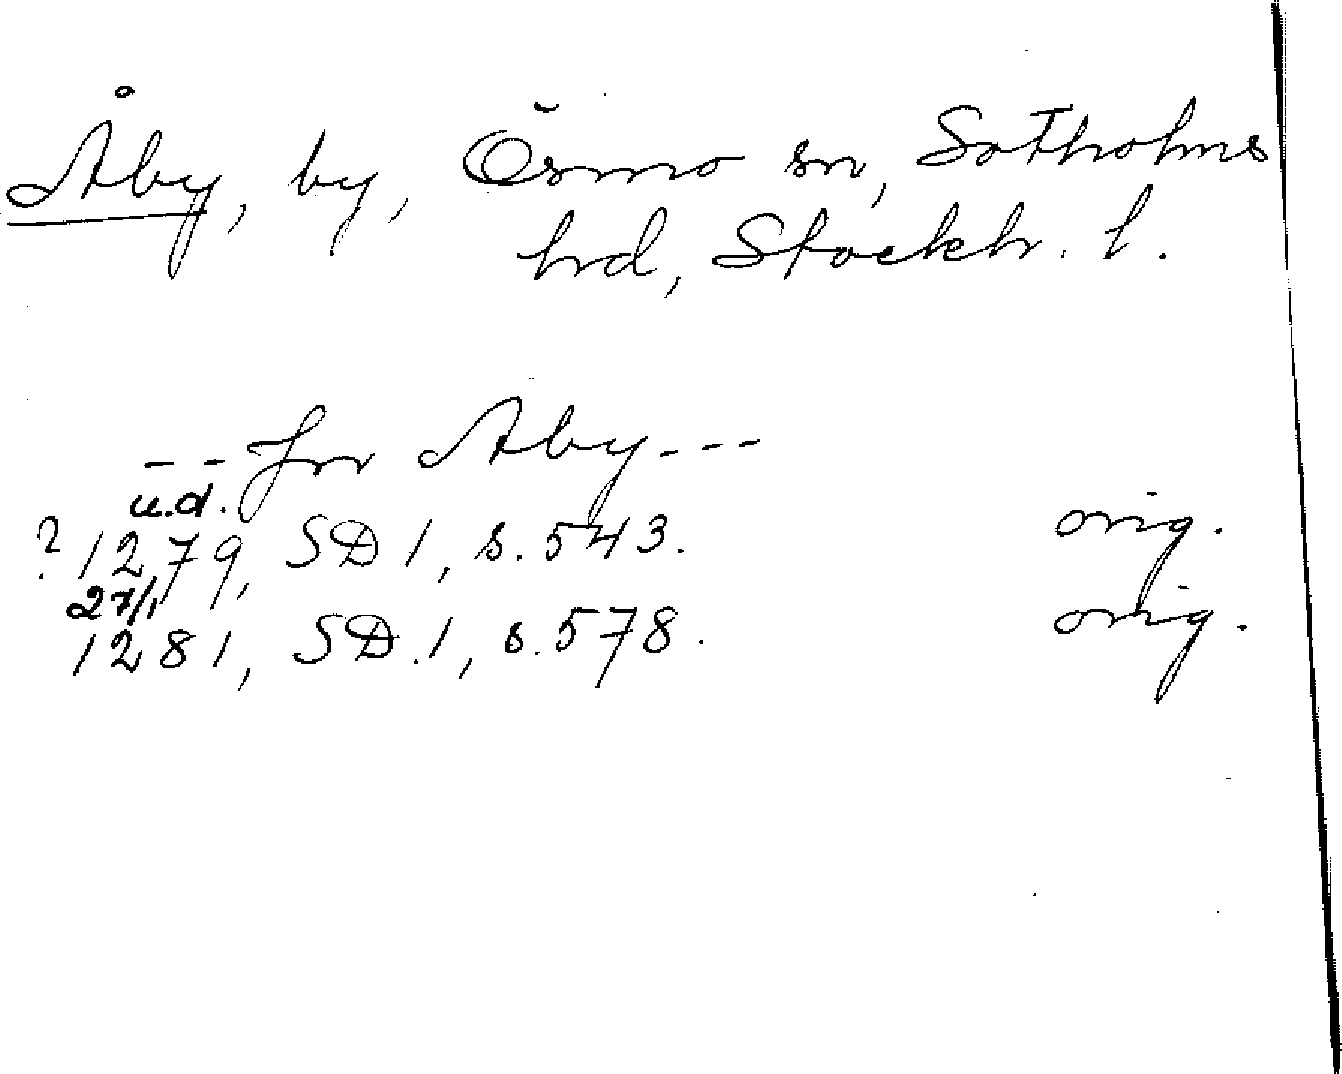 Åby, by, Ösmo sn, Sotholms
hrd, Stockh. l.
-- Jnr Aby ---
u.d.
? 1279, SD 1, s. 543. orig.
27/1
1281, SD. 1, s. 578. orig.